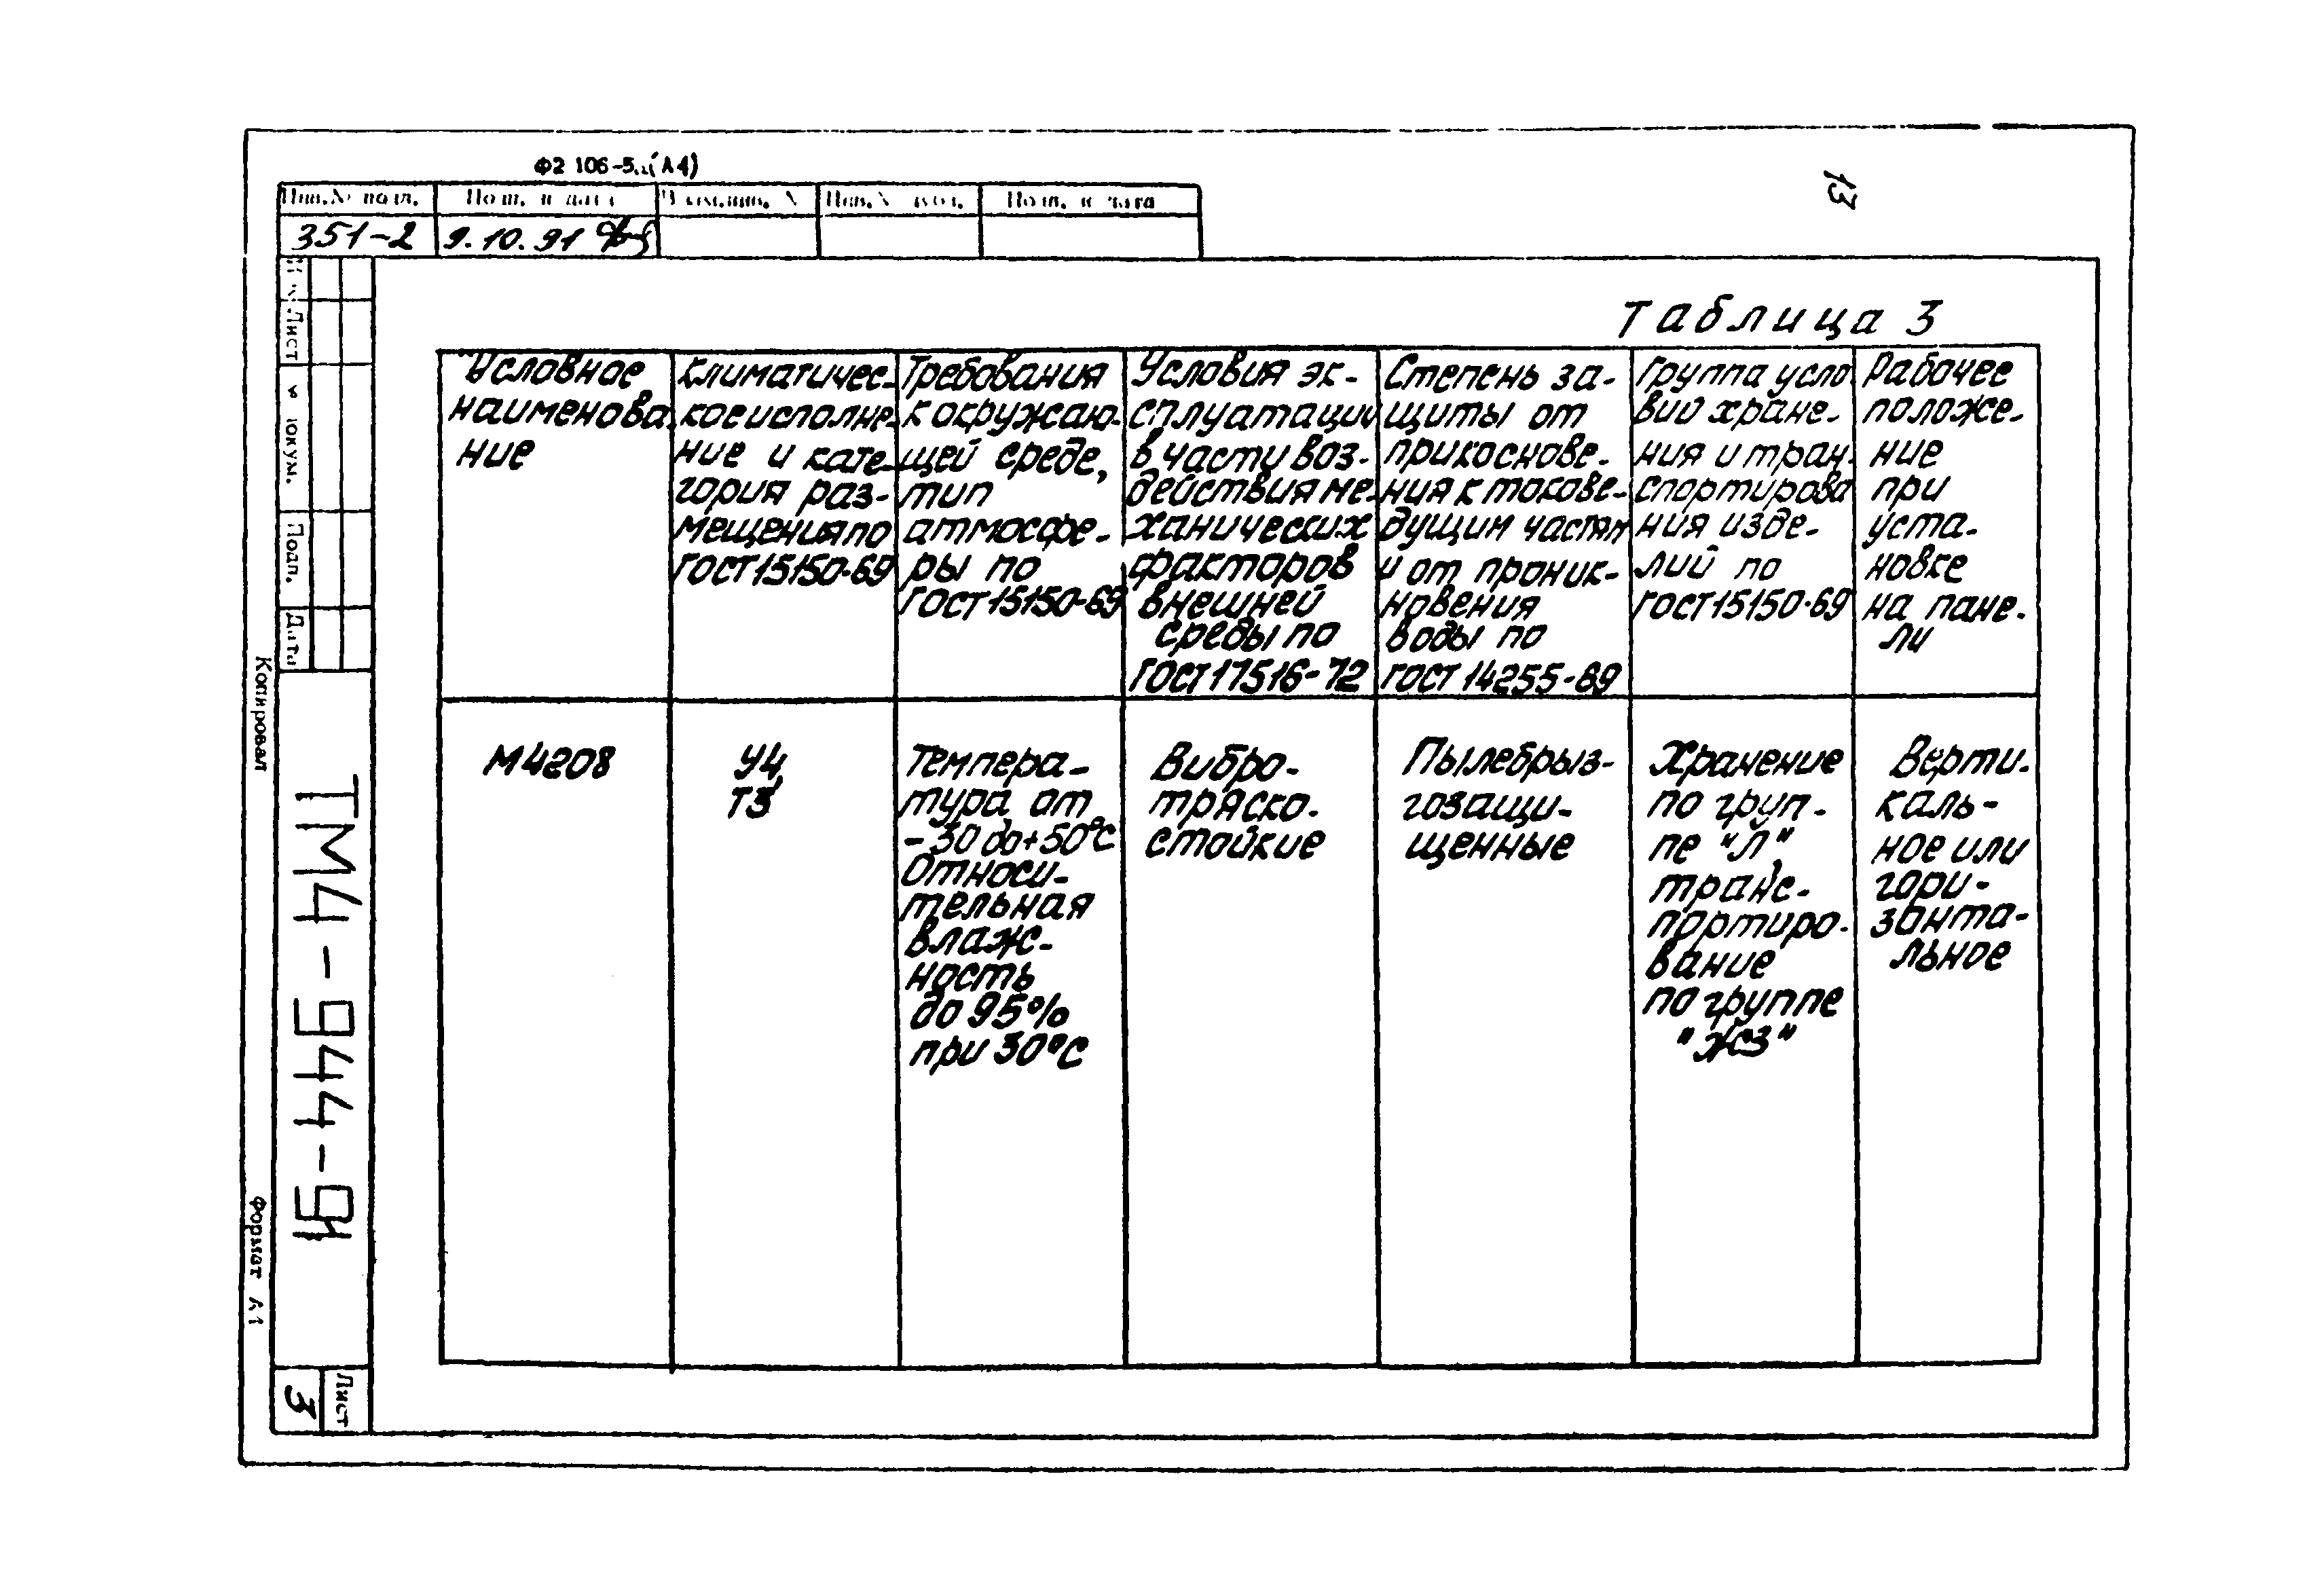 Ф2 106-5а(А4)
13
Инв.№ подл.
Подп. и дата
Взам.инв. №
Инв.№ дубл.
Подп. и дата
351-2
9.10.91
Таблица 3
Условное
наименова
ние
Климатичес-
кое исполне-
ние и кате-
гория раз-
мещения по
ГОСТ 15150-69
Требования
к окружаю-
щей среде,
тип
атмосфе-
ры по
ГОСТ 15150-69
Условия эк-
сплуатации
в части воз-
действия ме-
ханических
факторов
внешней
среды по
ГОСТ 17516-72
Степень за-
щиты от
прикоснове-
ния к токове-
дущим частям
и от проник-
новения
воды по
ГОСТ 14255-69
Группа усло
вий хране-
ния и тран-
спортирова
ния изде-
лий по
ГОСТ 15150-69
Рабочее
положе-
ние
при
уста-
новке
на пане-
ли
М4208
У4,
Т3
Темпера-
тура от
-30 до +50°С
Относи-
тельная
влаж-
ность
до 95%
при 30°С
Вибро-
тряско-
стойкие
Пылебрыз-
гозащи-
щенные
Хранение
по груп-
пе "Л",
транс-
портиро-
вание
по группе
"Ж3"
Верти-
каль-
ное или
гори-
зонта-
льное
Лист
докум.
Подп.
Дата
ТМ4-944-91
Лист
3
Копировал
Формат А4